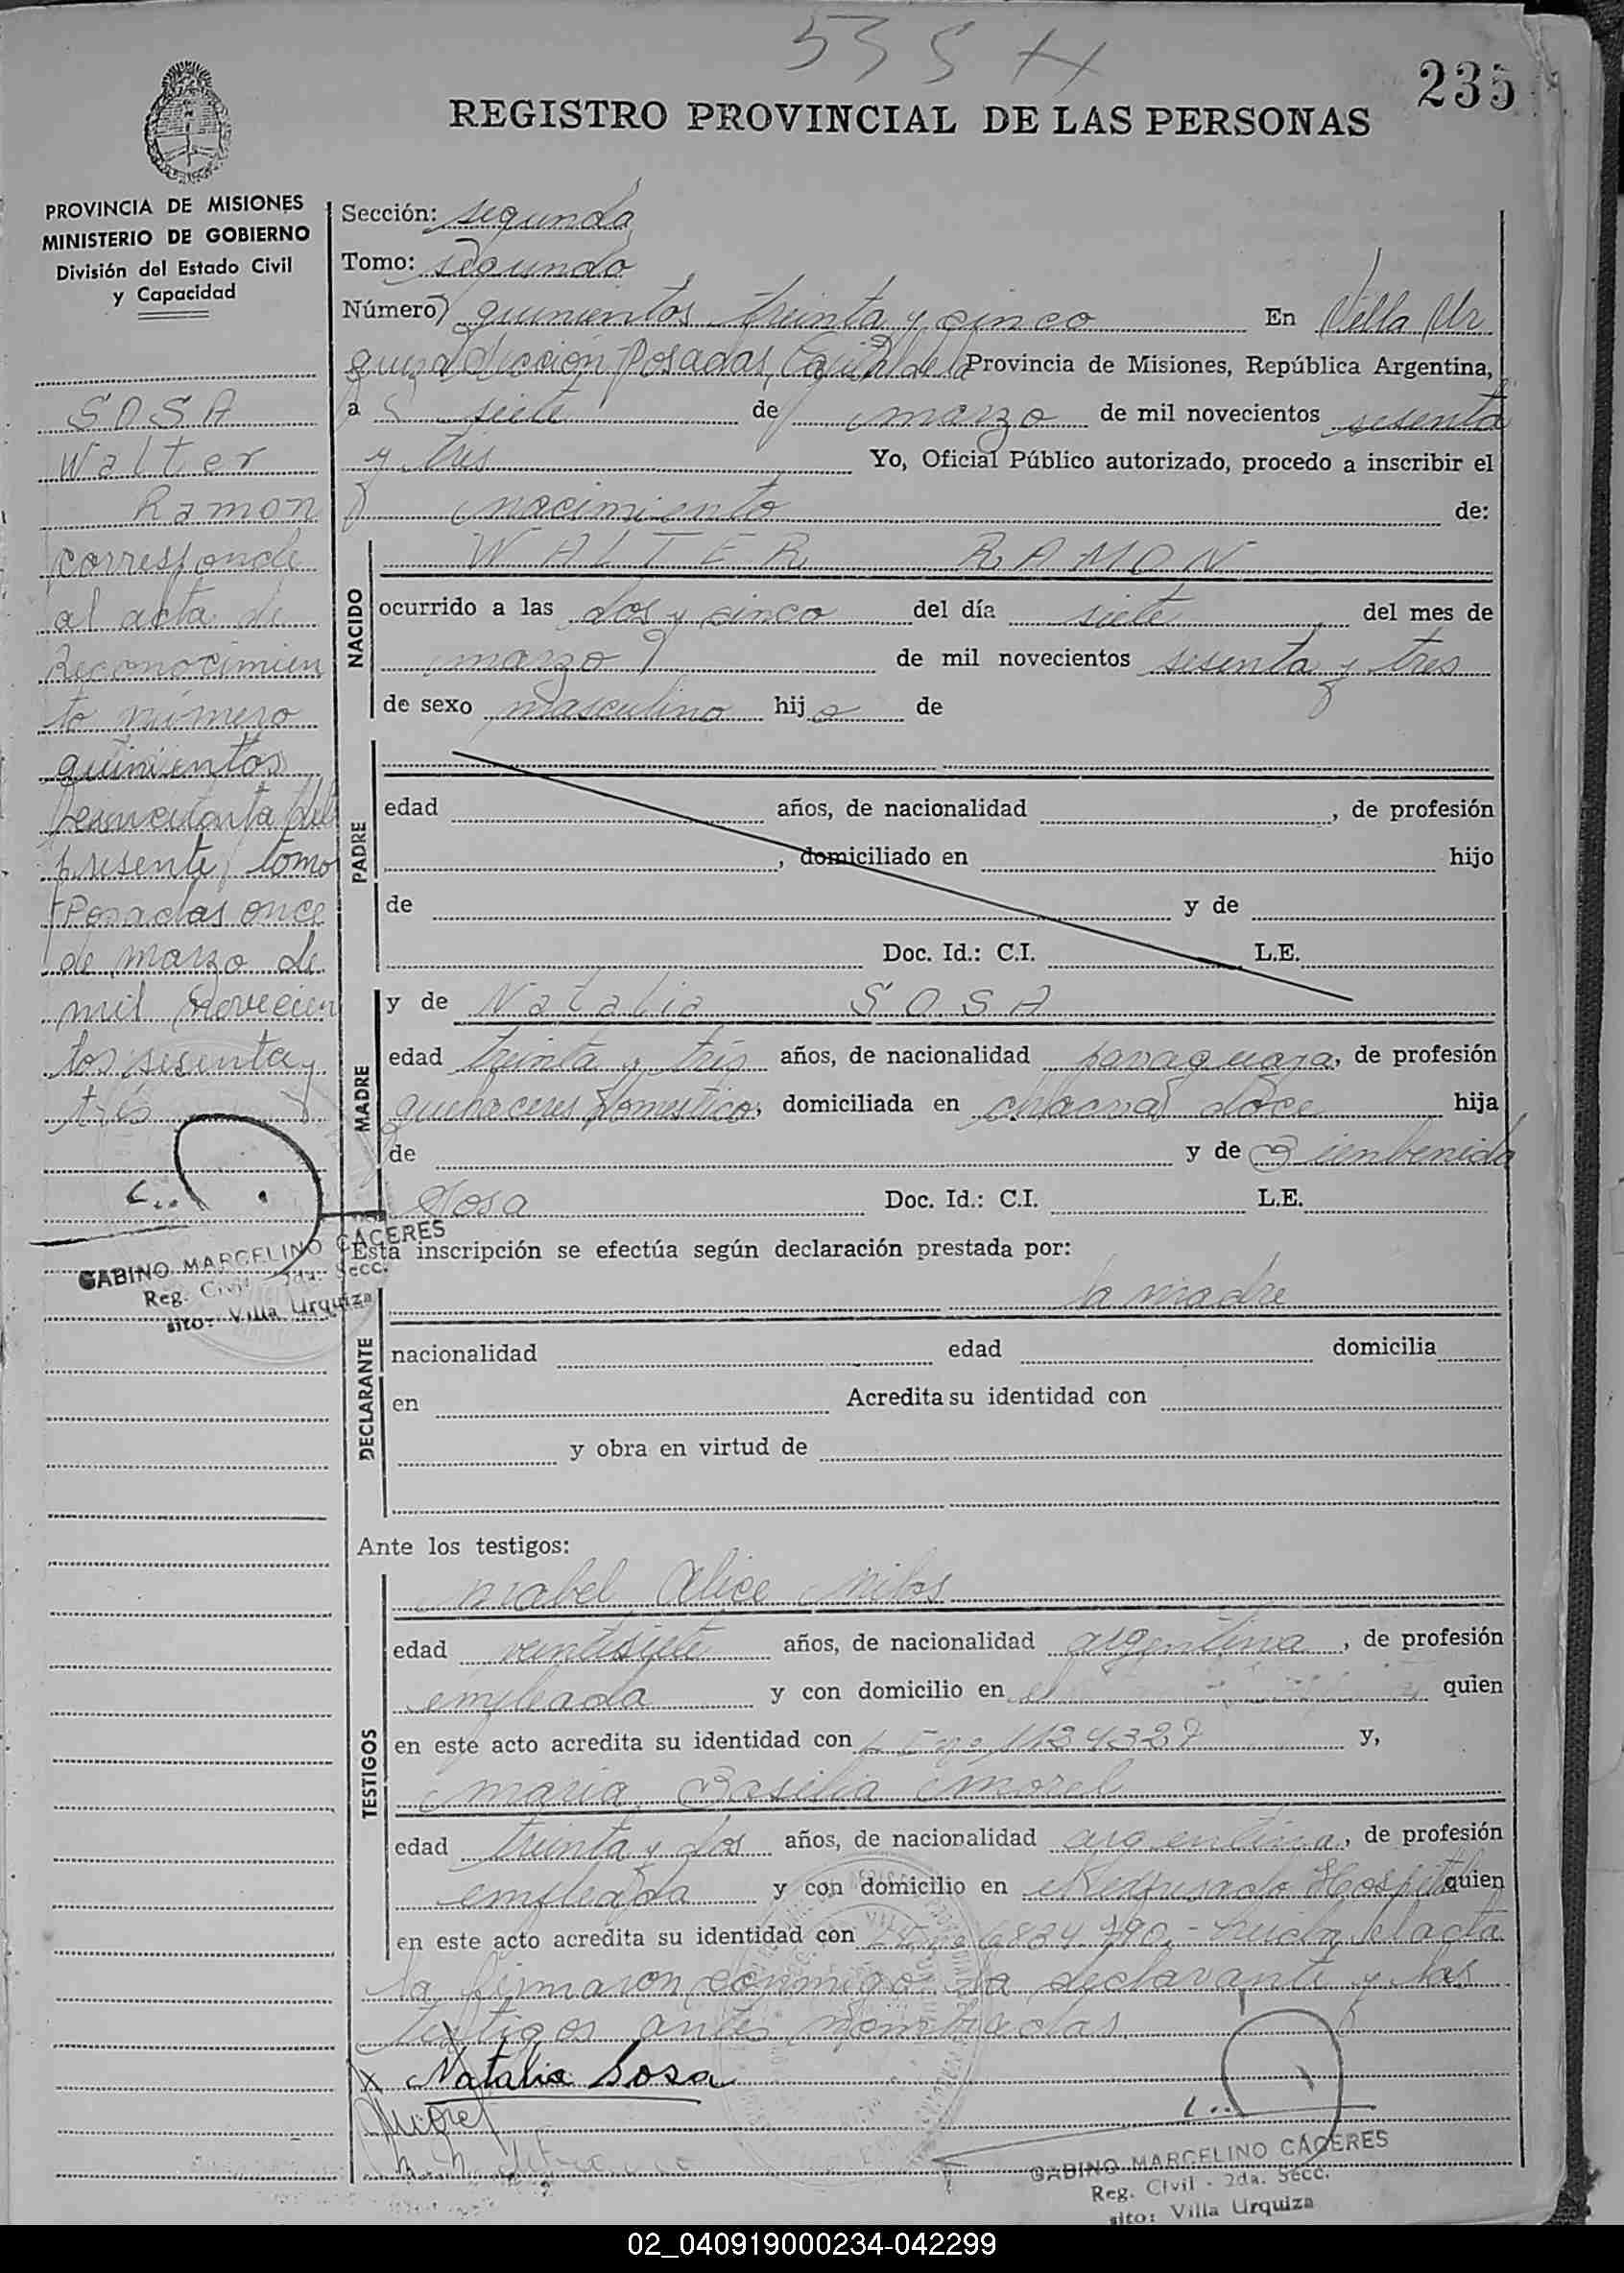 535
235
REGISTRO PROVINCIAL DE LAS PERSONAS
PROVINCIA DE MISIONES
MINISTERIO DE GOBIERNO
División del Estado Civil
y Capacidad
SOSA
Walter
Ramon
corresponde
al acta de
Reconocimien
to número
quinientos
del
presente tomo
Posadas once
de marzo de
mil novecien
tos sesenta y
tres
GABINO MARCELINO CACERES
Reg. Civil 2da. Secc.
sito: Villa Urquiza
Sección: segunda
Tomo: segundo
Número quinientos treinta y cinco En Villa Ur
quiza Posadas, Capital de la Provincia de Misiones, República Argentina,
a siete de marzo de mil novecientos sesenta
y tres Yo, Oficial Público autorizado, procedo a inscribir el
nacimiento de:
NACIDO
WALTER RAMON
ocurrido a las dos y cinco del día siete del mes de
marzo de mil novecientos sesenta y tres
de sexo masculino hijo de
PADRE
edad años, de nacionalidad , de profesión
, domiciliado en hijo
de y de
Doc. Id.: C.I. L.E.
MADRE
y de Natalia SOSA
edad treinta y tres años, de nacionalidad paraguaya, de profesión
quehaceres domesticos, domiciliada en chacra doce hija
de y de Bienbenida
Sosa Doc. Id.: C.I. L.E.
Esta inscripción se efectúa según declaración prestada por:
DECLARANTE
la madre
nacionalidad edad domicilia
en Acredita su identidad con
y obra en virtud de
Ante los testigos:
TESTIGOS
Mabel Alice
edad ventisiete años, de nacionalidad argentina, de profesión
empleada y con domicilio en el quien
en este acto acredita su identidad con y,
Maria Basilia Morel
edad treinta y dos años, de nacionalidad argentina, de profesión
empleada y con domicilio en el expresado Hospital quien
en este acto acredita su identidad con 6824.790.- Leida el acta
la firmaron conmigo la declarante y las
testigos antes nombradas
x Natalia Sosa
Morel
GABINO MARCELINO CACERES
Reg. Civil - 2da. Secc.
sito: Villa Urquiza
02_040919000234-042299